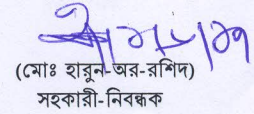 (মোঃ হারুন-অর-রশিদ)
সহকারী-নিবন্ধক